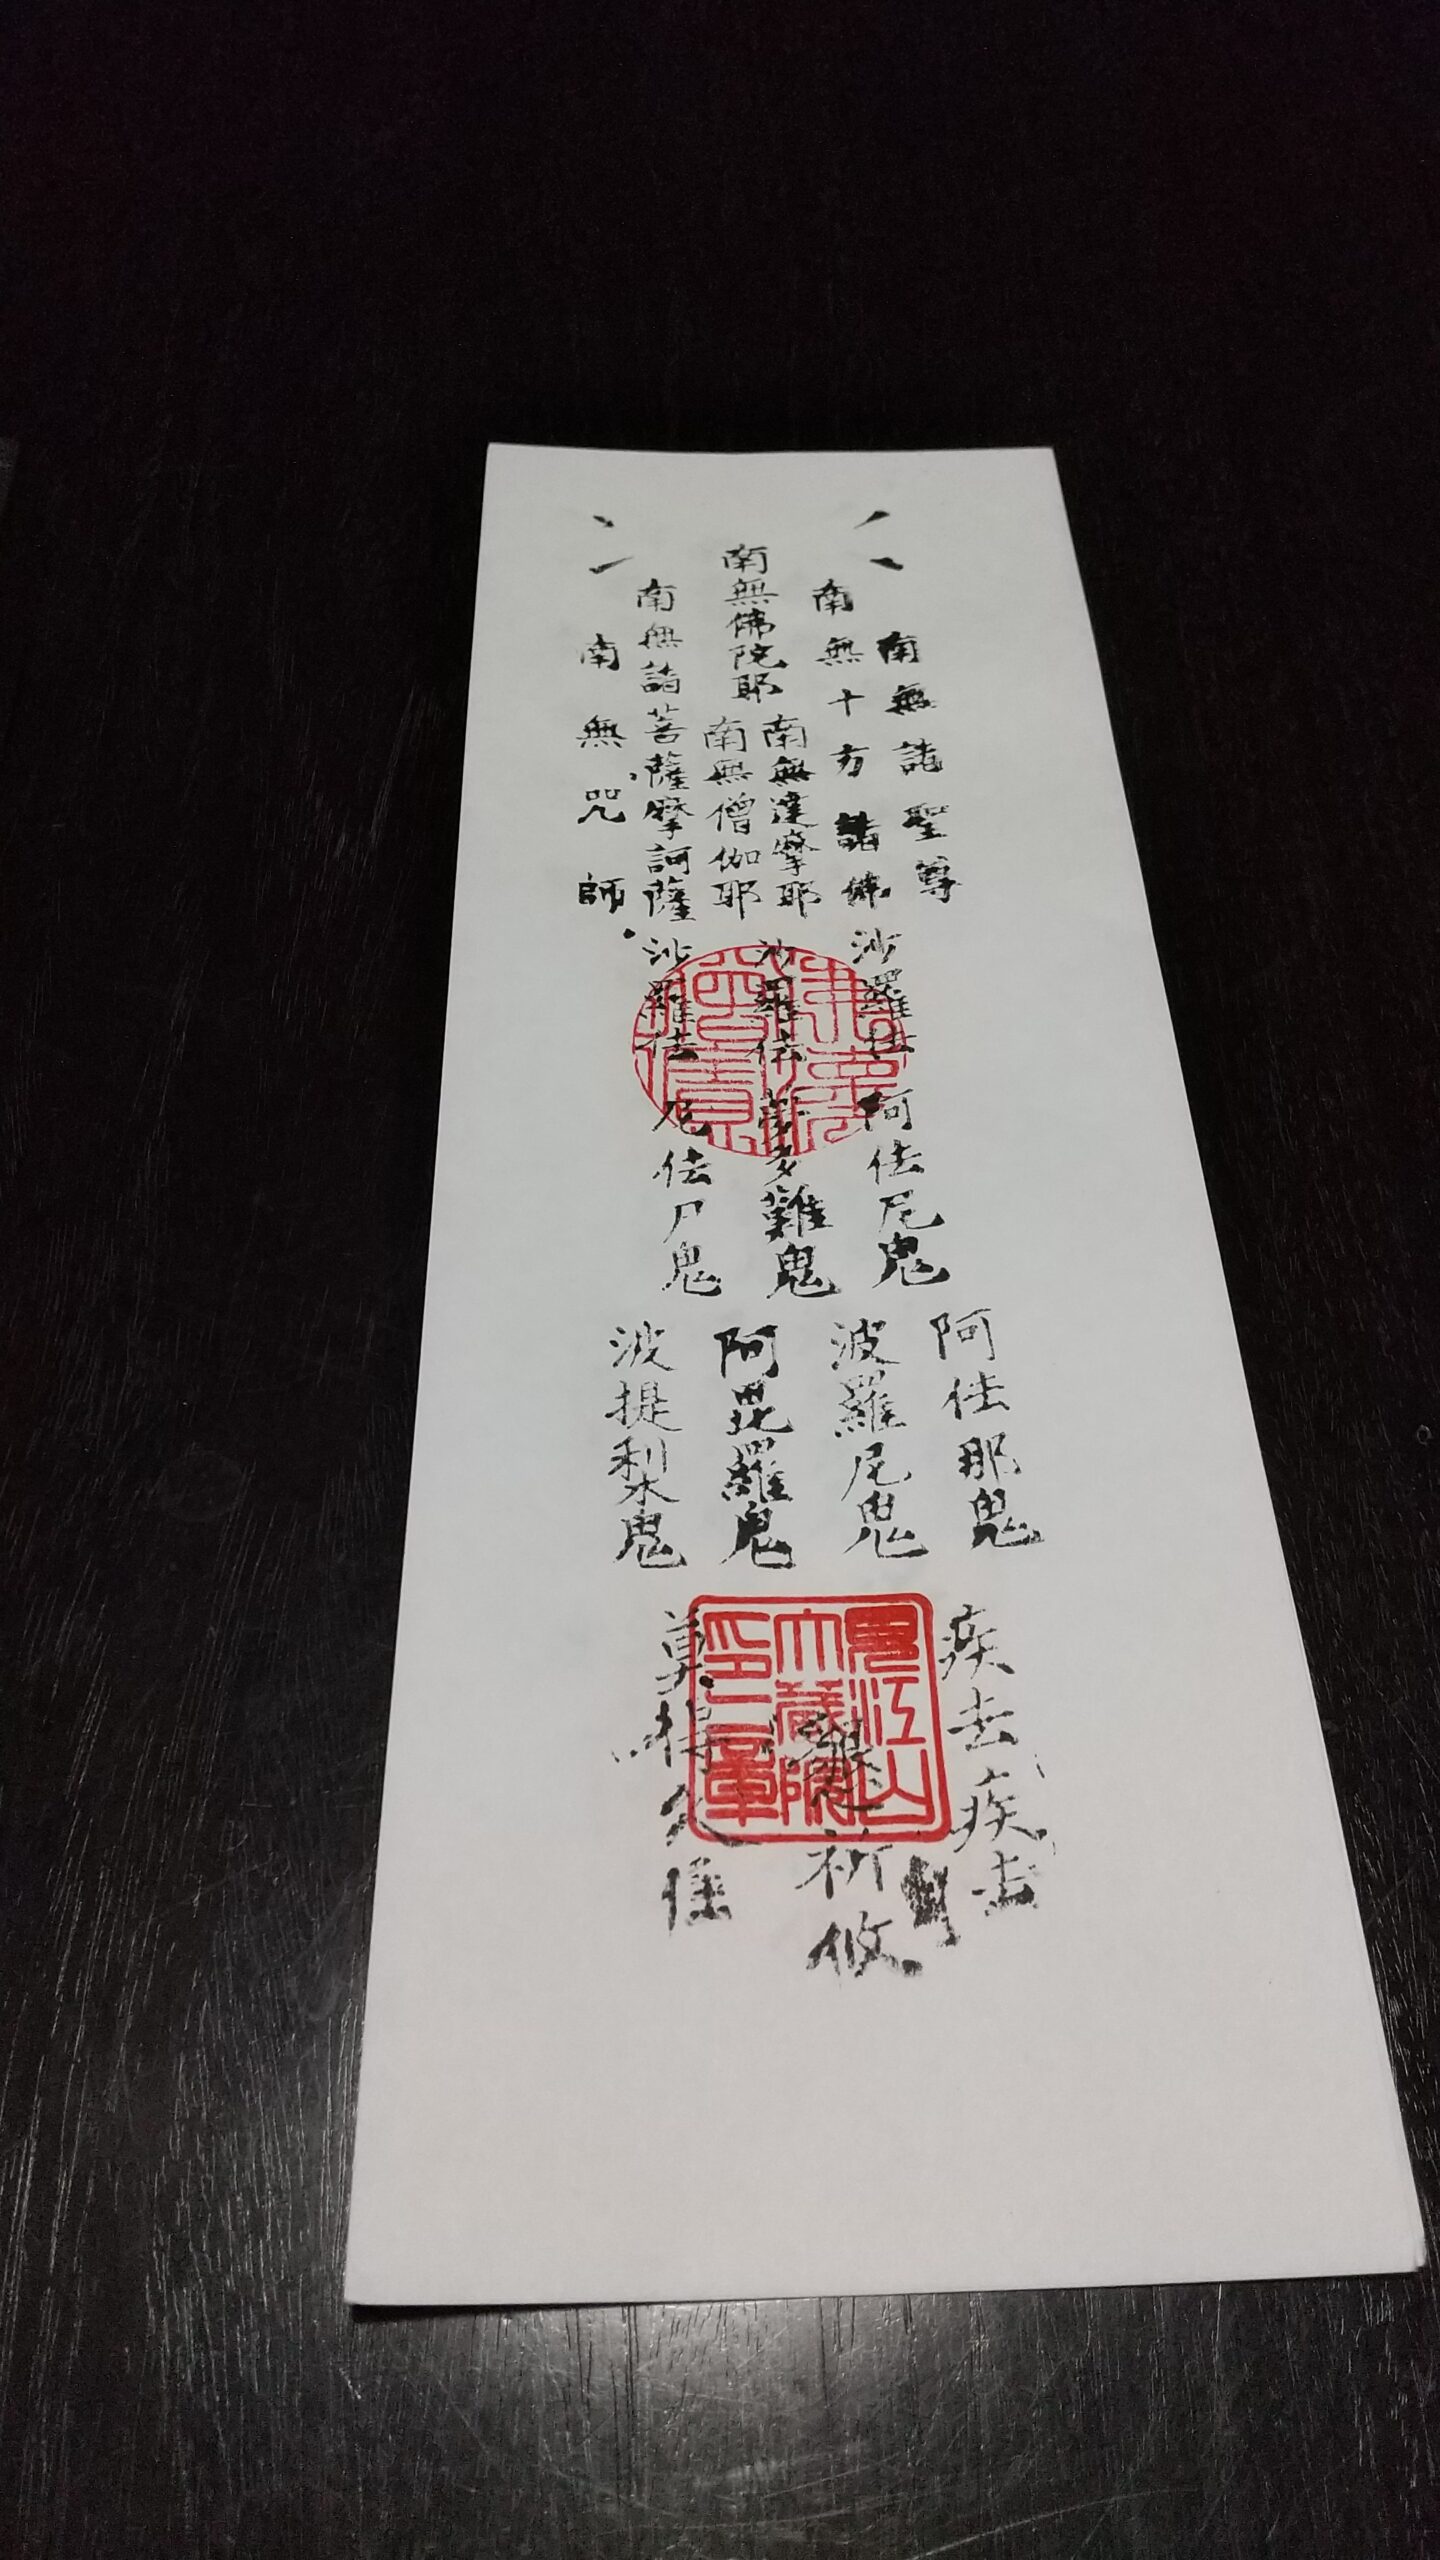 南無佛陀耶
南無達摩耶
南無僧伽耶
南無十方諸佛
南無諸菩薩摩訶薩
南無諸聖尊
南無咒師
沙羅佉
沙羅佉
沙羅佉
阿佉尼鬼
多難鬼
尼佉尸鬼
阿佉那鬼
波羅尼鬼
阿毘羅鬼
波提梨鬼
疾去疾去
莫得久住